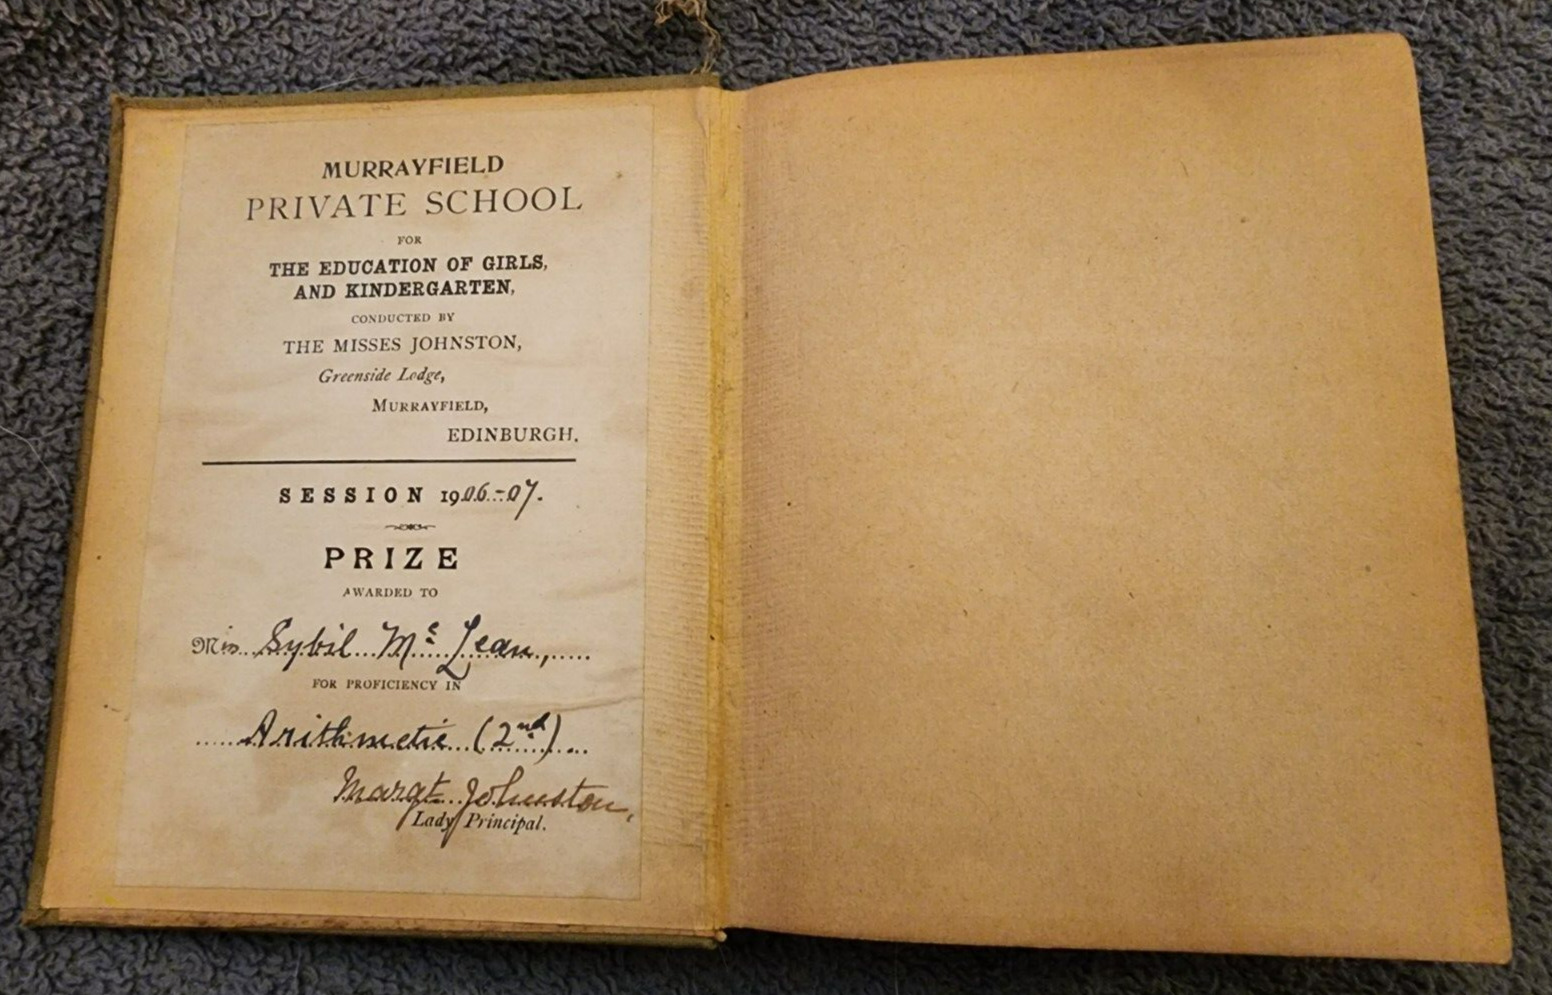 MURRAYFIELD
PRIVATE SCHOOL
FOR
THE EDUCATION OF GIRLS,
AND KINDERGARTEN,
CONDUCTED BY
THE MISSES JOHNSTON,
Greenside Lodge,
MURRAYFIELD,
EDINBURGH.
SESSION 1906-07.
PRIZE
AWARDED TO
Miss Sybil Mc Lean,
FOR PROFICIENCY IN
Arithmetic (2nd)
Margt Johnston,
Lady Principal.